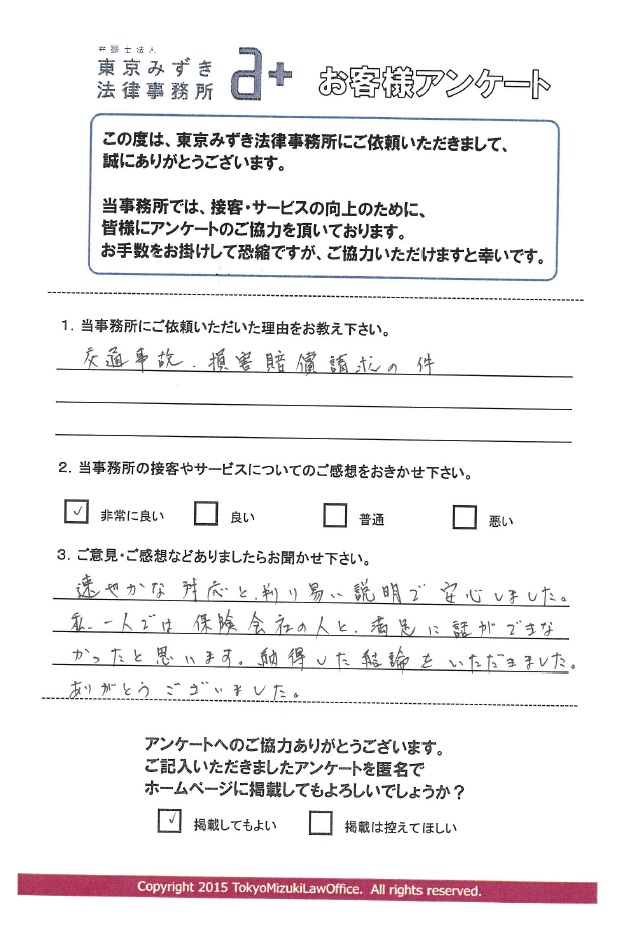 弁護士法人
東京みずき
法律事務所
a+
お客様アンケート
この度は、東京みずき法律事務所にご依頼いただきまして、
誠にありがとうございます。
当事務所では、接客・サービスの向上のために、
皆様にアンケートのご協力を頂いております。
お手数をお掛けして恐縮ですが、ご協力いただけますと幸いです。
1. 当事務所にご依頼いただいた理由をお教え下さい。
交通事故、損害賠償請求の件
2. 当事務所の接客やサービスについてのご感想をおきかせ下さい。
✓ 非常に良い 良い 普通 悪い
3. ご意見・ご感想などありましたらお聞かせ下さい。
速やかな対応と、判り易い説明で安心しました。
私、一人では保険会社の人と、満足に話ができな
かったと思います。納得した結論をいただきました。
ありがとうございました。
アンケートへのご協力ありがとうございます。
ご記入いただきましたアンケートを匿名で
ホームページに掲載してもよろしいでしょうか？
✓ 掲載してもよい 掲載は控えてほしい
Copyright 2015 TokyoMizukiLawOffice. All rights reserved.